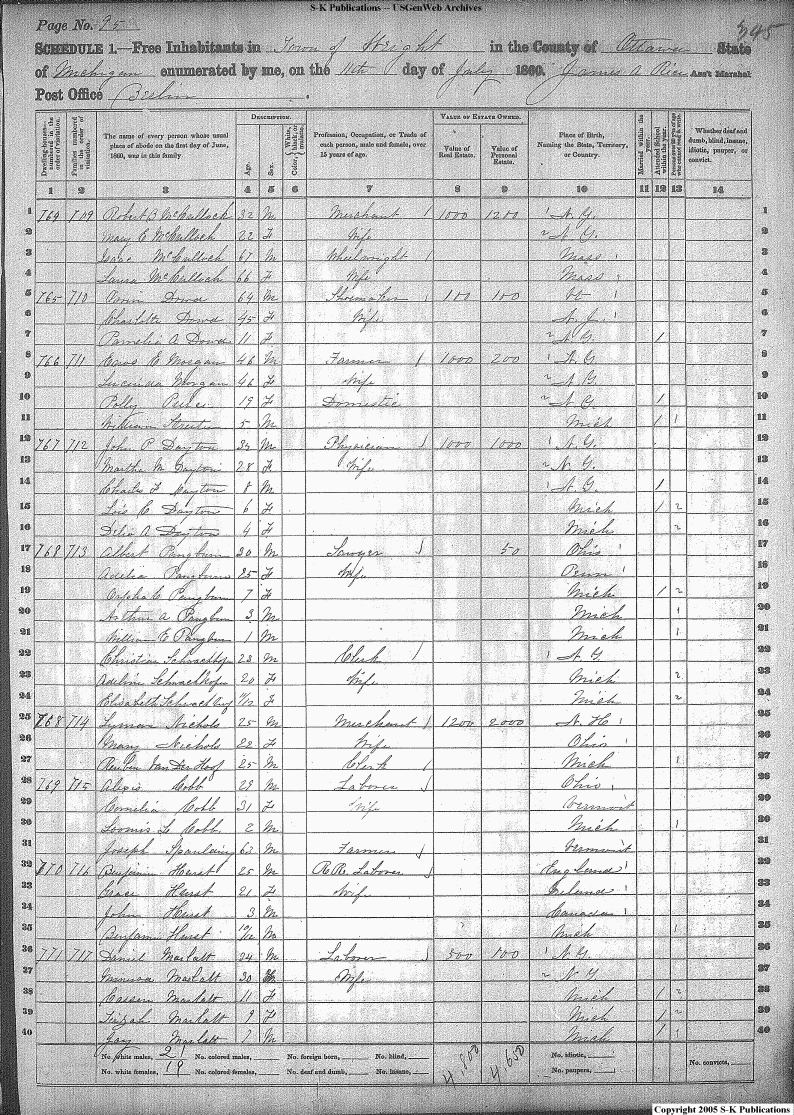 S-K Publications -- USGenWeb Archives
Page No. 95
345
SCHEDULE 1.—Free Inhabitants in Town of Wright in the County of Ottawa State
of Michigan enumerated by me, on the 11th day of July 1860. James A Rice Ass't Marshal
Post Office Berlin
Dwelling-houses—numbered in the order of visitation.
Families numbered in the order of visitation.
The name of every person whose usual place of abode on the first day of June, 1860, was in this family
DESCRIPTION.
Age.
Sex.
Color, White, black, or mulatto.
Profession, Occupation, or Trade of each person, male and female, over 15 years of age.
VALUE OF ESTATE OWNED.
Value of Real Estate.
Value of Personal Estate.
Place of Birth, Naming the State, Territory, or Country.
Married within the year.
Attended School within the year.
Whether deaf and dumb, blind, insane, idiotic, pauper, or convict.
1 2 3 4 5 6 7 8 9 10 11 12 13 14
1 764 709 Robert B McCulloch 32 M Merchant 1000 1200 N.Y. 1
2 Mary C McCulloch 22 F Wife N.Y. 2
3 Isaac McCulloch 67 M Wheelwright Mass 3
4 Laura McCulloch 66 F Wife Mass 4
5 765 710 Dowd 64 M Shoemaker 100 100 Vt 5
6 Charlotte Dowd 45 F Wife N.J. 6
7 Pamelia A Dowd 11 F N.Y. 1 7
8 766 711 E Morgan 46 M Farmer 1000 200 N.Y. 8
9 Lucinda Morgan 46 F Wife N.Y. 9
10 Polly 19 F Domestic N.Y. 1 10
11 William Street 5 M Mich 1 1 11
12 767 712 John P Dayton 34 M Physician 1000 1000 N.Y. 12
13 Martha M Dayton 28 F Wife N.Y. 13
14 Charles F Dayton 8 M N.Y. 1 14
15 Lois C Dayton 6 F Mich 1 2 15
16 Delia A Dayton 4 F Mich 2 16
17 768 713 Albert Pangburn 30 M Sawyer 50 Ohio 17
18 Adelia Pangburn 25 F Wife Penn 18
19 Orpha C Pangburn 7 F Mich 1 2 19
20 Arthur A Pangburn 3 M Mich 1 20
21 William E Pangburn 1 M Mich 1 21
22 Christian 23 M Clerk N.Y. 22
23 Adeline 20 F Wife Mich 2 23
24 Elisabeth F Mich 2 24
25 768 714 Lyman Nichols 25 M Merchant 1200 2000 N.H. 25
26 Mary Nichols 22 F Wife Ohio 26
27 Reuben Van Der Hoof 25 M Clerk Mich 1 27
28 769 715 Alexis Cobb 29 M Laborer Ohio 28
29 Cornelia Cobb 31 F Wife Vermont 29
30 Loomis L Cobb 2 M Mich 1 30
31 Joseph Spaulding 63 M Farmer Vermont 31
32 770 716 Benjamin Hurst 25 M R.R. Laborer England 32
33 Grace Hurst 21 F Wife Ireland 33
34 John Hurst 3 M Canadian 34
35 Benjamin Hurst 10/12 M Mich 1 35
36 771 717 Daniel Marlatt 34 M Laborer 500 100 N.Y. 36
37 Minerva Marlatt 30 Wife N.Y. 37
38 Marlatt 11 F Mich 1 2 38
39 Tirzah Marlatt 9 F Mich 1 2 39
40 Jay Marlatt 7 M Mich 1 1 40
No. white males, 21 No. colored males, No. foreign born, No. blind, 4,800 4,650 No. idiotic,
No. white females, 19 No. colored females, No. deaf and dumb, No. insane, No. paupers, No. convicts,
Copyright 2005 S-K Publications